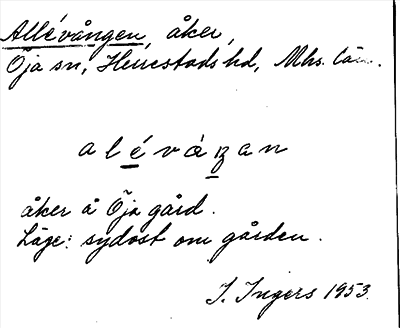 Allévången, åker,
Öja sn, Herrestads hd, Mhs. län.
alévåŋan
åker å Öja gård.
Läge: sydost om gården.
I. Ingers 1953.